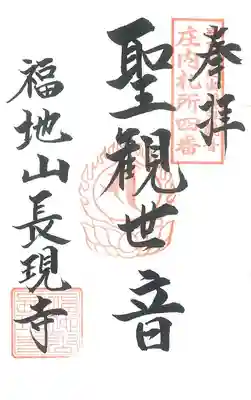 奉拝
庄内札所四番
聖観世音
福地山長現寺